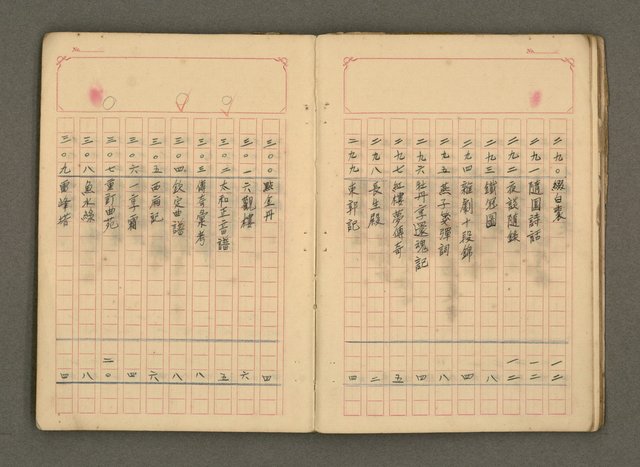 No.
二九〇 綴白裘 一二
二九一 隨園詩話 一二
二九二 夜談隨錄 一二
二九三 鐵冠圖 八
二九四 雜劇十段錦 四
二九五 燕子箋彈詞 四
二九六 牡丹亭還魂記 四
二九七 紅樓夢傳奇 五
二九八 長生殿 二
二九九 東郭記 四
No.
三〇〇 點金丹 四
三〇一 六觀樓 六
三〇二 太和正音譜 五
三〇三 傳奇彙考 八
三〇四 欽定曲譜 八
三〇五 西廂記 六
三〇六 一亭霜 四
三〇七 重訂曲苑 二〇
三〇八 魚水緣 八
三〇九 雷峰塔 四